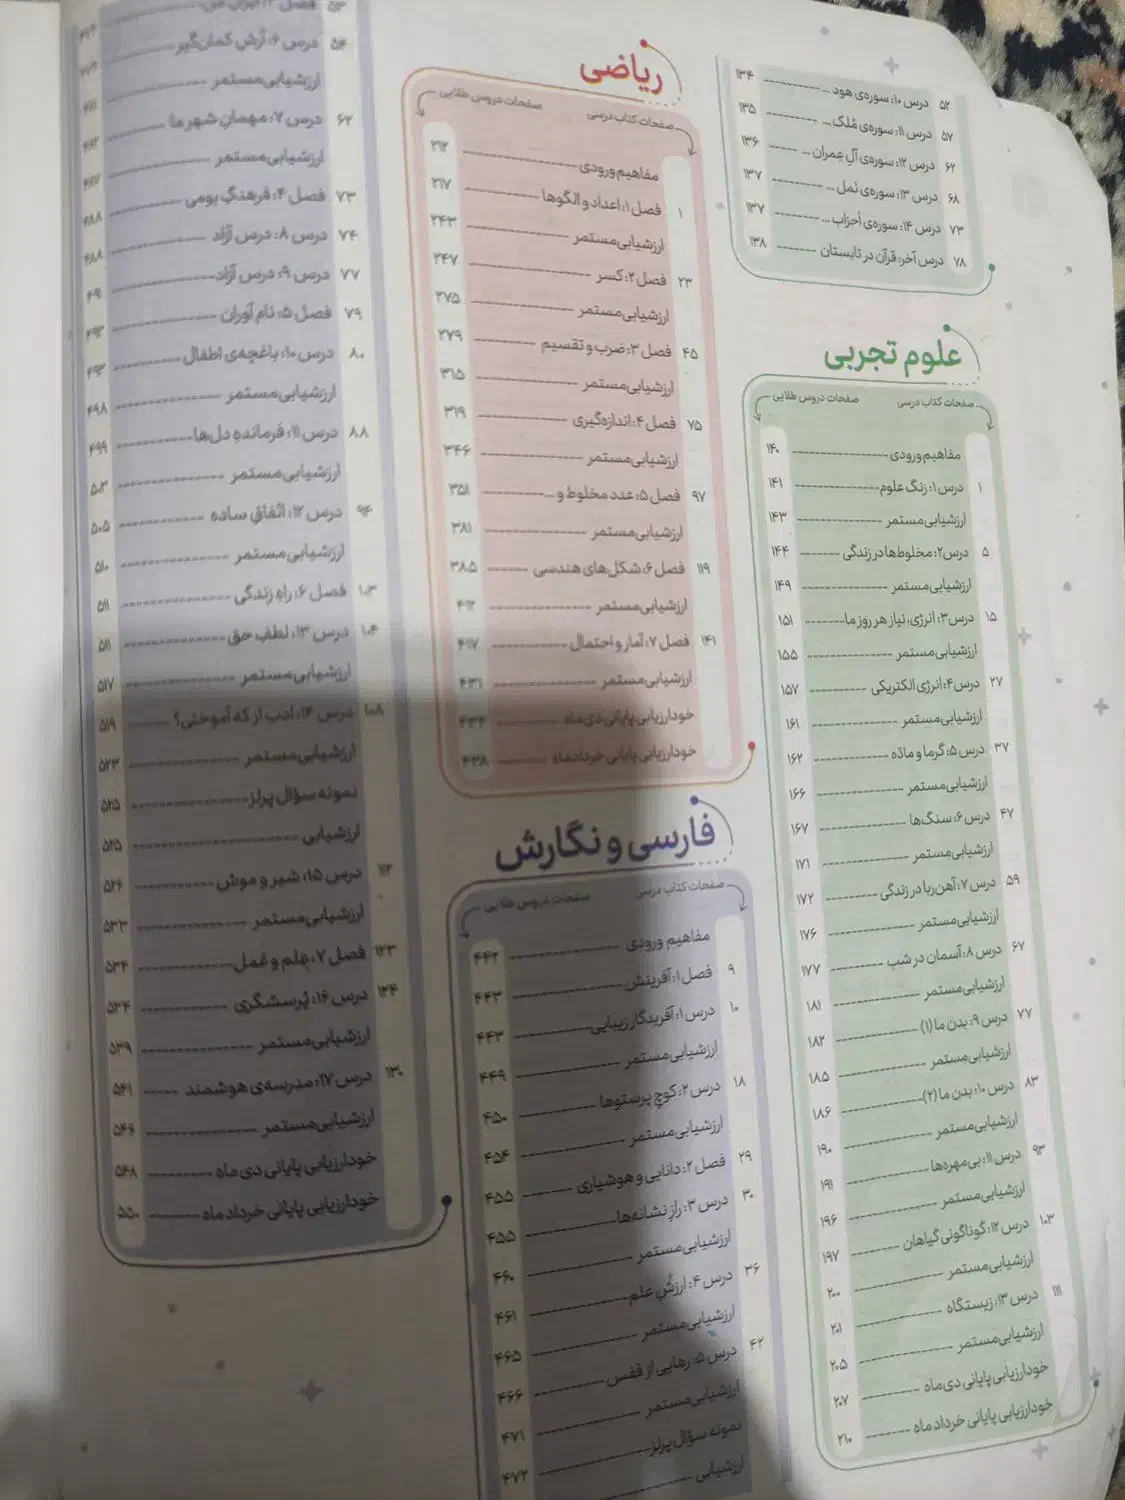 ۵۲ درس ۱۰: سوره‌ی هود ... ۱۳۴
۵۷ درس ۱۱: سوره‌ی مُلک ... ۱۳۵
۶۲ درس ۱۲: سوره‌ی آلِ عِمران ... ۱۳۶
۶۸ درس ۱۳: سوره‌ی نَمل ... ۱۳۷
۷۳ درس ۱۴: سوره‌ی اَحزاب ... ۱۳۷
۷۸ درس آخر: قرآن در تابستان ۱۳۸
علوم تجربی
صفحات کتاب درسی صفحات دروس طلایی
مفاهیم ورودی ۱۴۰
۱ درس ۱: زنگ علوم ۱۴۱
ارزشیابی مستمر ۱۴۳
۵ درس ۲: مخلوط‌ها در زندگی ۱۴۴
ارزشیابی مستمر ۱۴۹
۱۵ درس ۳: انرژی، نیاز هر روز ما ۱۵۱
ارزشیابی مستمر ۱۵۵
۲۷ درس ۴: انرژی الکتریکی ۱۵۷
ارزشیابی مستمر ۱۶۱
۳۷ درس ۵: گرما و مادّه ۱۶۲
ارزشیابی مستمر ۱۶۶
۴۷ درس ۶: سنگ‌ها ۱۶۷
ارزشیابی مستمر ۱۷۱
۵۹ درس ۷: آهن‌ربا در زندگی ۱۷۲
ارزشیابی مستمر ۱۷۶
۶۷ درس ۸: آسمان در شب ۱۷۷
ارزشیابی مستمر ۱۸۱
۷۷ درس ۹: بدن ما (۱) ۱۸۲
ارزشیابی مستمر ۱۸۵
۸۳ درس ۱۰: بدن ما (۲) ۱۸۶
ارزشیابی مستمر ۱۹۰
۹۳ درس ۱۱: بی‌مهره‌ها ۱۹۱
ارزشیابی مستمر ۱۹۶
۱۰۳ درس ۱۲: گوناگونی گیاهان ۱۹۷
ارزشیابی مستمر ۲۰۰
۱۱۱ درس ۱۳: زیستگاه ۲۰۱
ارزشیابی مستمر ۲۰۵
خودارزیابی پایانی دی‌ماه ۲۰۷
خودارزیابی پایانی خرداد ماه ۲۱۰
ریاضی
صفحات کتاب درسی صفحات دروس طلایی
مفاهیم ورودی ۲۱۲
۱ فصل ۱: اعداد و الگوها ۲۱۷
ارزشیابی مستمر ۲۴۳
۲۳ فصل ۲: کسر ۲۴۷
ارزشیابی مستمر ۲۷۵
۴۵ فصل ۳: ضرب و تقسیم ۲۷۹
ارزشیابی مستمر ۳۱۵
۷۵ فصل ۴: اندازه‌گیری ۳۱۹
ارزشیابی مستمر ۳۴۶
۹۷ فصل ۵: عدد مخلوط و ... ۳۵۱
ارزشیابی مستمر ۳۸۱
۱۱۹ فصل ۶: شکل‌های هندسی ۳۸۵
ارزشیابی مستمر ۴۱۲
۱۴۱ فصل ۷: آمار و احتمال ۴۱۷
ارزشیابی مستمر ۴۳۱
خودارزیابی پایانی دی‌ماه ۴۳۴
خودارزیابی پایانی خردادماه ۴۳۸
فارسی و نگارش
صفحات کتاب درسی صفحات دروس طلایی
مفاهیم ورودی ۴۴۲
۹ فصل ۱: آفرینش ۴۴۳
۱۰ درس ۱: آفریدگار زیبایی ۴۴۳
ارزشیابی مستمر ۴۴۹
۱۸ درس ۲: کوچ پرستوها ۴۵۰
ارزشیابی مستمر ۴۵۴
۲۹ فصل ۲: دانایی و هوشیاری ۴۵۵
۳۰ درس ۳: رازِ نشانه‌ها ۴۵۵
ارزشیابی مستمر ۴۶۰
۳۶ درس ۴: ارزشِ علم ۴۶۱
ارزشیابی مستمر ۴۶۵
۴۲ درس ۵: رهایی از قفس ۴۶۶
ارزشیابی مستمر ۴۷۱
نمونه سؤال پرلز ۴۷۲
ارزشیابی
۵۴ درس ۶: آرش کمان‌گیر
ارزشیابی مستمر
۶۲ درس ۷: مهمانِ شهر ما
ارزشیابی مستمر
۷۳ فصل ۴: فرهنگِ بومی ۴۸۸
۷۴ درس ۸: درس آزاد ۴۸۸
۷۷ درس ۹: درس آزاد
۷۹ فصل ۵: نام‌آوران ۴۹۳
۸۰ درس ۱۰: باغچه‌ی اطفال ۴۹۳
ارزشیابی مستمر ۴۹۸
۸۸ درس ۱۱: فرمانده دل‌ها ۴۹۹
ارزشیابی مستمر ۵۰۳
۹۴ درس ۱۲: اتّفاقِ ساده ۵۰۵
ارزشیابی مستمر ۵۱۰
۱۰۳ فصل ۶: راهِ زندگی ۵۱۱
۱۰۴ درس ۱۳: لطفِ حق ۵۱۱
ارزشیابی مستمر ۵۱۷
۱۰۸ درس ۱۴: ادب از که آموختی؟ ۵۱۹
ارزشیابی مستمر ۵۲۳
نمونه سؤال پرلز ۵۲۵
ارزشیابی ۵۲۵
۱۱۲ درس ۱۵: شیر و موش ۵۲۶
ارزشیابی مستمر ۵۳۳
۱۲۳ فصل ۷: علم و عمل ۵۳۴
۱۲۴ درس ۱۶: پُرسشگری ۵۳۴
ارزشیابی مستمر ۵۳۹
۱۳۰ درس ۱۷: مدرسه‌ی هوشمند ۵۴۱
ارزشیابی مستمر ۵۴۶
خودارزیابی پایانی دی ماه ۵۴۸
خودارزیابی پایانی خرداد ماه ۵۵۰